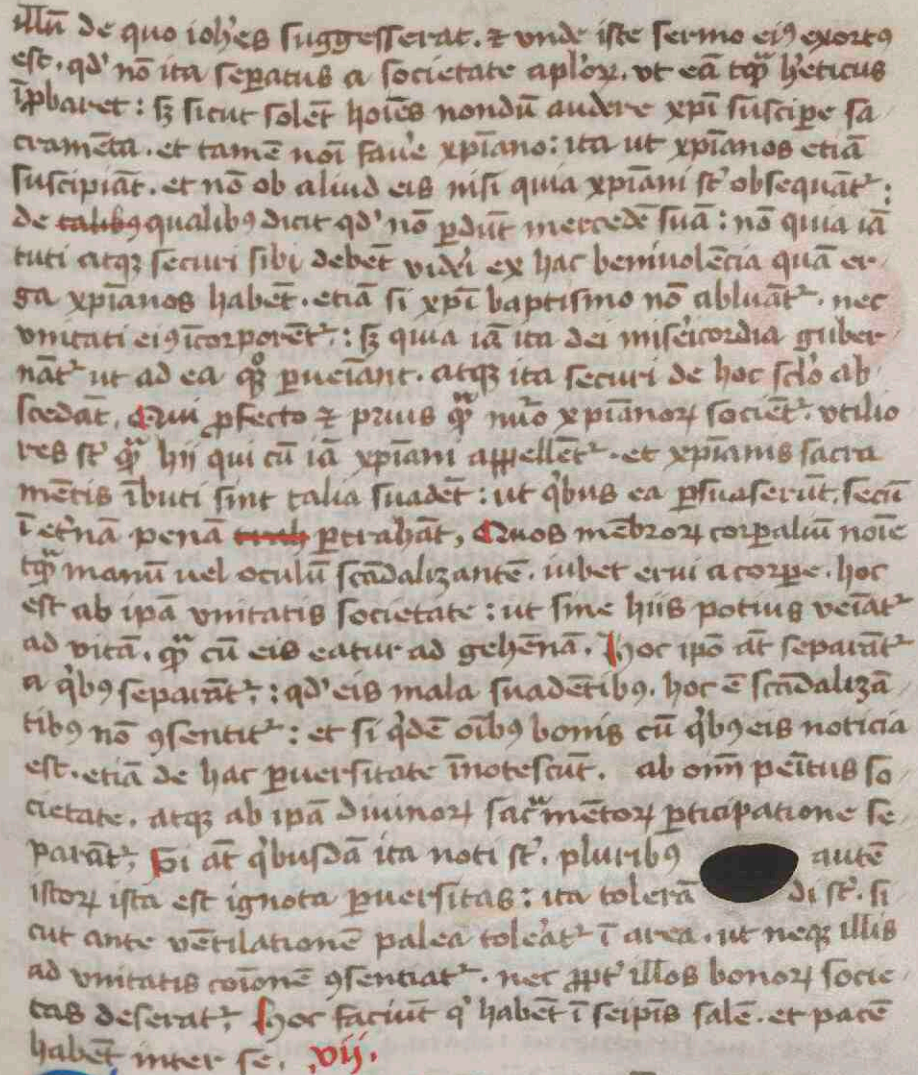 illũ de quo ioh'es suggesserat. ⁊ vnde iste sermo eiꝰ exortꝰ
est. qd' nõ ita sepatus a societate apl'oꝝ. vt eã tqᷓ h'eticus
ĩpbaret : sꝫ sicut solẽt hoĩes nondũ audere xp̃i suscipe sa
cramẽta. et tamẽ noĩ fau'e xp̃iano : ita ut xp̃ianos etiã
suscipiãt. et nõ ob aliud eis nisi quia xp̃iani st' obsequãt᷑ :
de talibꝰ qualibꝰ dicit qd' nõ ꝑdũt mercedẽ suã : nõ quia iã
tuti atqꝫ securi sibi debẽt vid'i ex hac beniuolẽcia quã er
ga xp̃ianos habẽt. etiã si xp̃i baptismo nõ abluãt᷑. nec
vnitati eiꝰ ĩcorporẽt᷑ : sꝫ quia iã ita dei mis'icordia guber
nãt᷑ ut ad ea qͦꝫ ꝑueĩant. atqꝫ ita securi de hoc sc'lo ab
scedãt, Qui ꝓfecto ⁊ prius qᷓ nũo xp̃ianoꝝ sociẽt᷑. vtilio
res st' qᷓ hij qui cũ iã xp̃iani appellẽt᷑. et xp̃ianis sacra
mẽtis ĩbuti sint talia suadẽt : ut q'bus ea ꝑsuaserũt, secũ
ĩ et'nã penã ꝑtrahãt, Quos mẽbroꝝ corꝑaliũ noĩe
tqᷓ manũ uel oculũ scãdalizantẽ. iubet erui a corꝑe. hoc
est ab ip̃a vnitatis societate : ut sine hiis potius veĩat᷑
ad vitã. qᷓ cũ eis eatur ad gehẽnã. Hoc ip̃o aũt separãt᷑
a q'bꝰ separãt᷑ : qd' eis mala suadẽtibꝰ. hoc ẽ scãdalizã
tibꝰ nõ ꝯsentit᷑ : et si q'dẽ oĩbꝰ bonis cũ q'bꝰ eis noticia
est. etiã de hac ꝑuersitate ĩnotescũt. ab om̃i pẽitus so
cietate. atqꝫ ab ip̃a diuinoꝝ sac̃mẽtoꝝ ꝑticipatione se
parãt᷑, Si aũt q'busdã ita noti st'. pluribꝰ autẽ
istoꝝ ista est ignota ꝑuersitas : ita tolerã di st'. si
cut ante vẽtilationẽ palea tole'at᷑ ĩ area. ut neqꝫ illis
ad vnitatis coĩonẽ ꝯsentiat᷑. nec ꝓpt' illos bonoꝝ socie
tas deserat᷑, Hoc faciũt q' habẽt ĩ seip̃is salẽ. et pacẽ
habẽt inter se. vij.